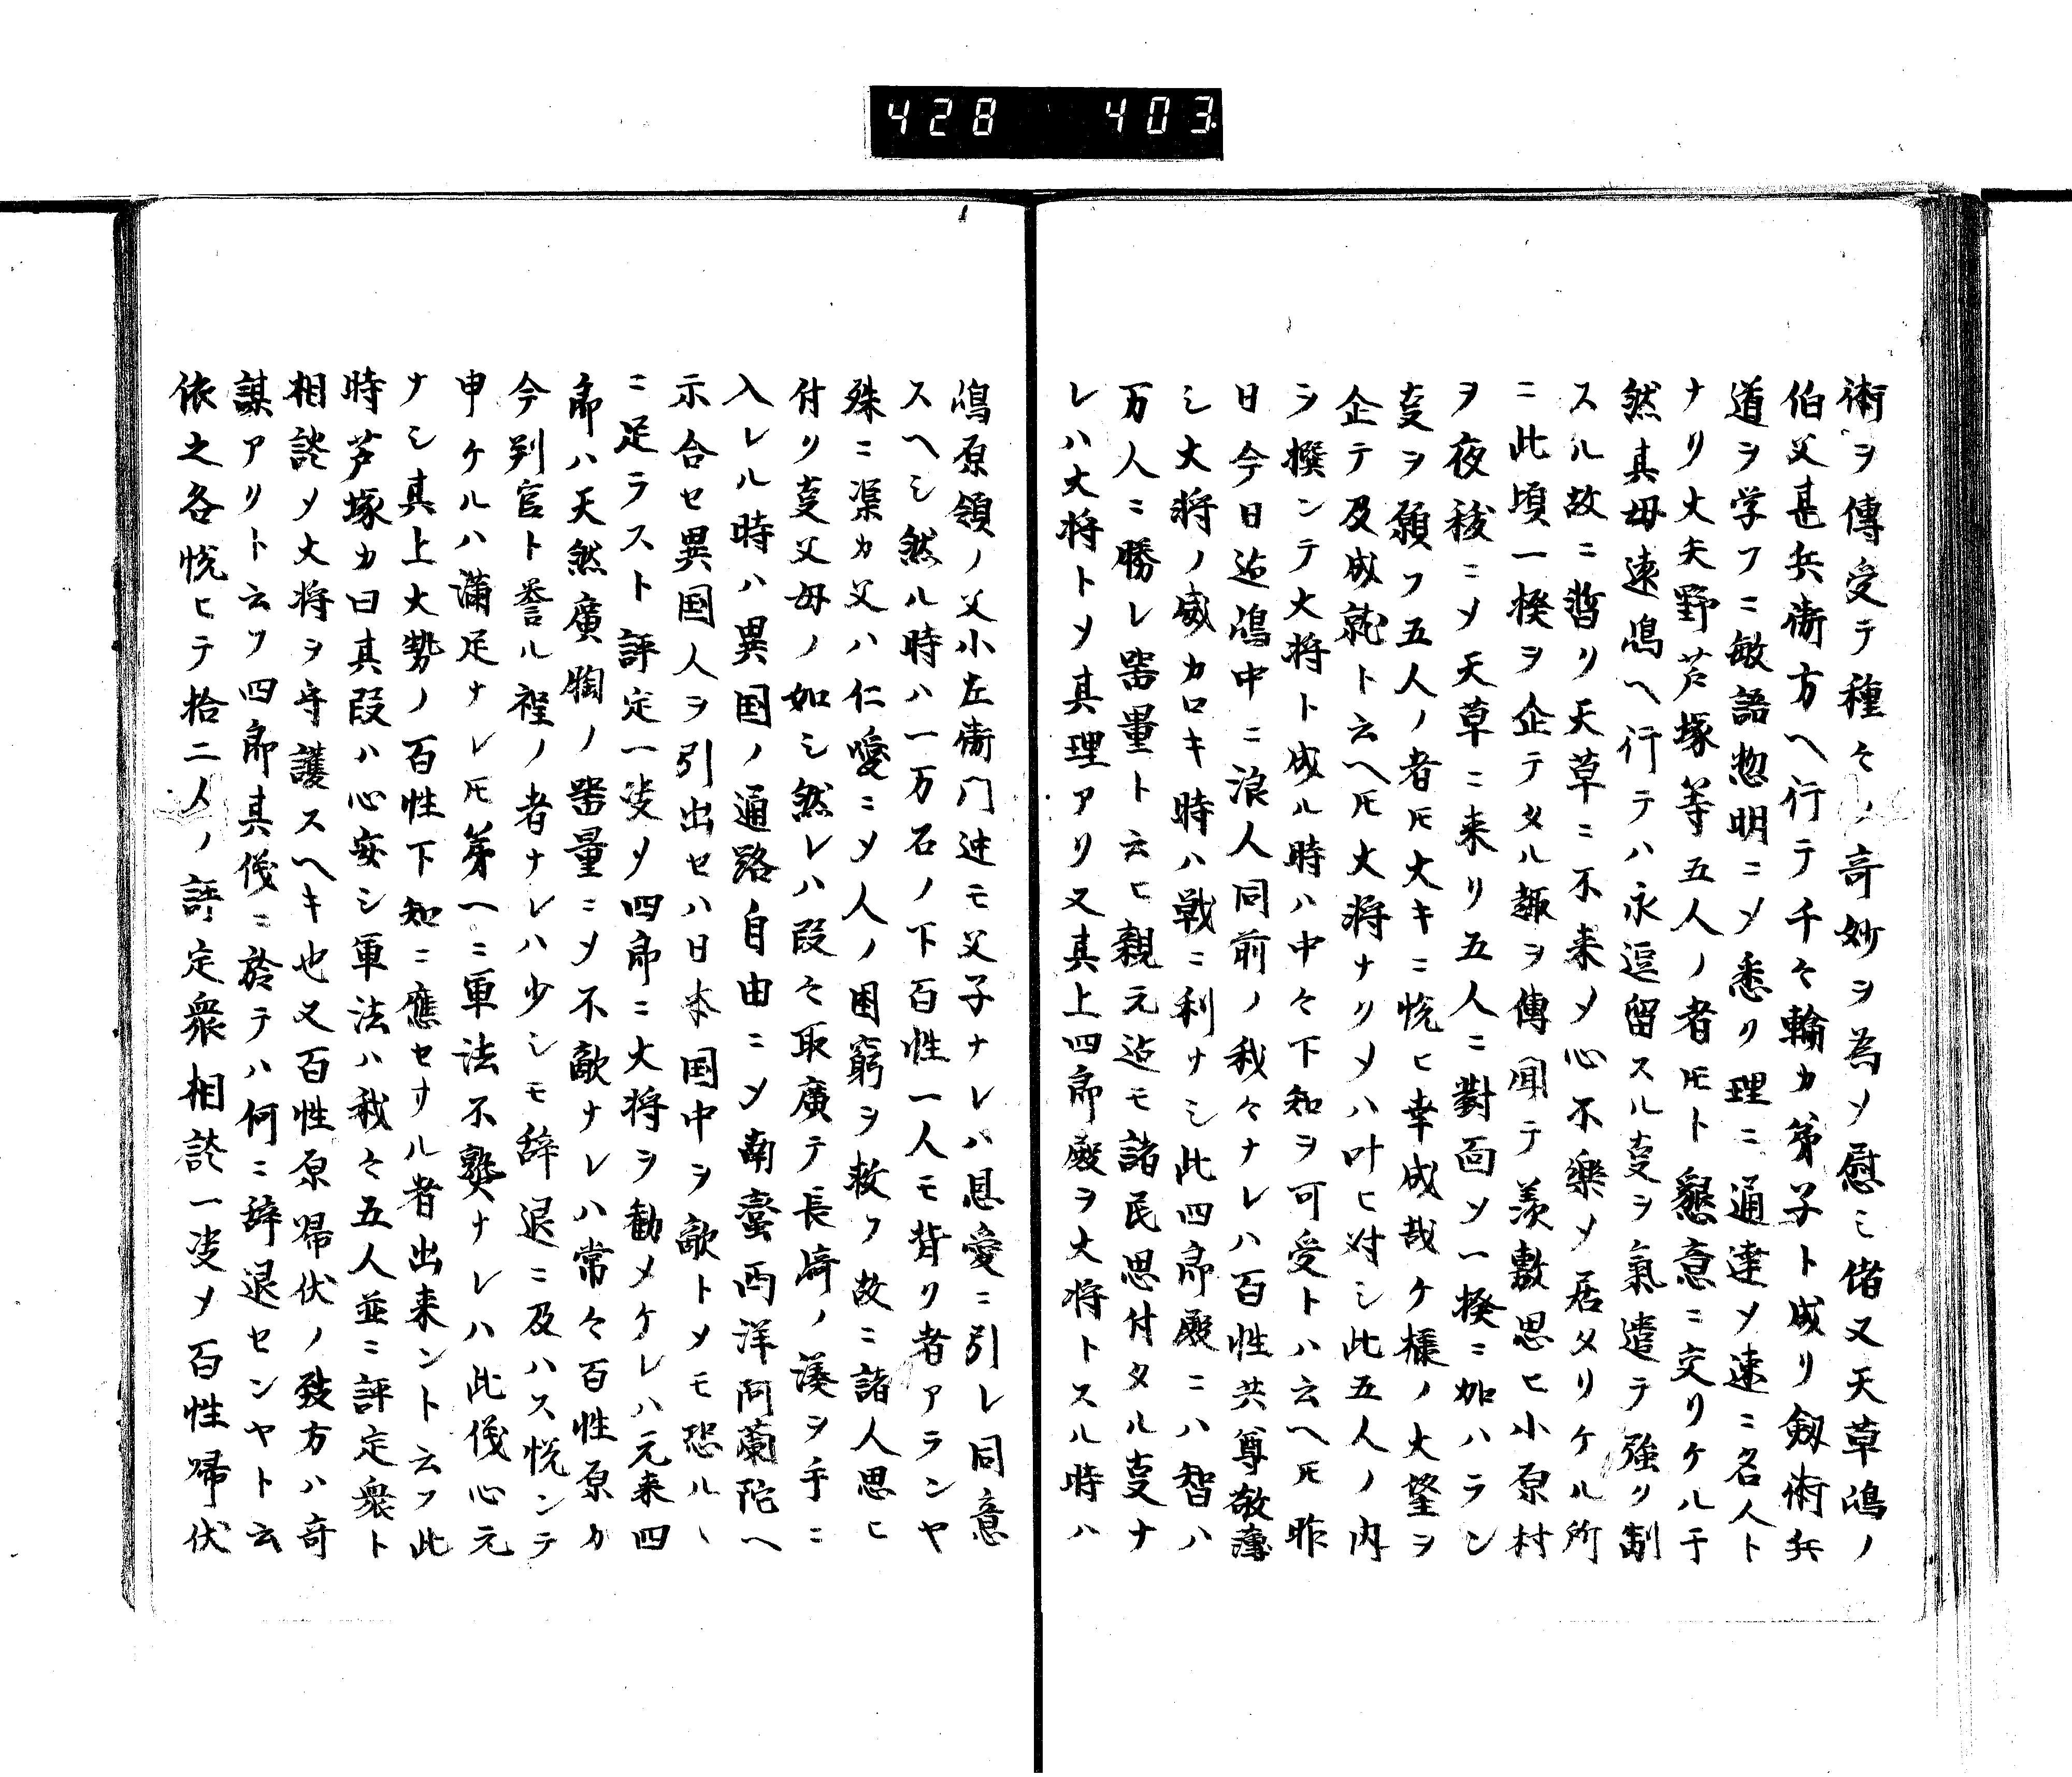 428 403
術ヲ傳受テ種々ノ奇妙ヲ為メ慰ミ偖又天草嶋ノ
伯父甚兵衛方ヘ行テ千々輪カ第子ト成リ劔術兵
道ヲ学フニ敏語惣明ニメ悉リ理ニ通達メ速ニ名人ト
ナリ大矢野芦塚等五人ノ者𪜈ト懇意ニ交リケル于
然其母速嶋ヘ行テハ永逗留スル㕝ヲ氣遣テ強ク制
スル故ニ暫リ天草ニ不来メ心不樂メ居タリケル所
ニ此頃一揆ヲ企テタル趣ヲ傳聞テ羨敷思ヒ小原村
ヲ夜稜ニメ天草ニ来リ五人ニ對面メ一揆ニ加ハラン
㕝ヲ願フ五人ノ者𪜈大キニ悦ヒ幸成哉ケ様ノ大望ヲ
企テ及成就ト云ヘ𪜈大将ナクメハ叶ヒ対シ此五人ノ内
ヲ撰ンテ大将ト成ル時ハ中々下知ヲ可受トハ云ヘ𪜈昨
日今日迠嶋中ニ浪人同前ノ我々ナレハ百性共尊敬薄
シ大将ノ威カロキ時ハ戦ニ利ナシ此四郎殿ニハ智ハ
万人ニ勝レ器量ト云ヒ親元迠モ諸民思付タル㕝ナ
レハ大将トメ其理アリ又其上四郎殿ヲ大将トスル時ハ
嶋原領ノ父小左衛门迚モ父子ナレハ恩愛ニ引レ同意
スヘシ然ル時ハ一万石ノ下百性一人モ背リ者アランヤ
殊ニ渠カ父ハ仁愛ニメ人ノ困窮ヲ救フ故ニ諸人思ヒ
付リ㕝父母ノ如シ然レハ段々取廣テ長崎ノ湊ヲ手ニ
入レル時ハ異国ノ通路自由ニメ南蛮両洋阿蘭陀ヘ
示合セ異国人ヲ引出セハ日本国中ヲ敵トメモ恐ルヽ
ニ足ラスト評定一决メ四郎ニ大将ヲ勧メケレハ元来四
郎ハ天然廣胸ノ器量ニメ不敵ナレハ常々百性原カ
今判官ト誉ル程ノ者ナレハ少シモ辞退ニ及ハス悦ンテ
申ケルハ満足ナレ𪜈第一ニ軍法不熟ナレハ此儀心元
ナシ其上大勢ノ百性下知ニ應セサル者出来ント云フ此
時芦塚カ曰其段ハ心安シ軍法ハ我々五人並ニ評定衆ト
相談メ大将ヲ守護スヘキ也又百性原帰伏ノ致方ハ奇
謀アリト云フ四郎其儀ニ於テハ何ニ辞退センヤト云
依之各悦ヒテ拾二人ノ評定衆相談一决メ百性帰伏